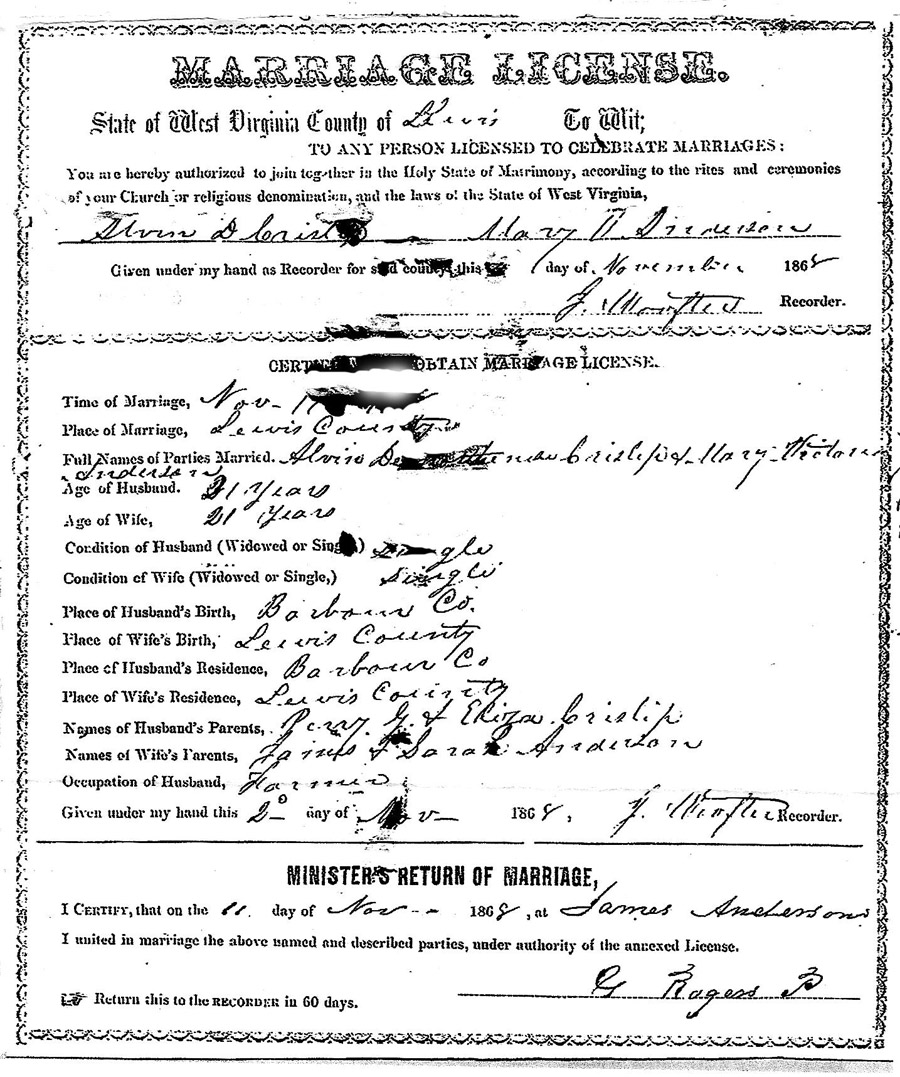 MARRIAGE LICENSE.
State of West Virginia County of Lewis To Wit;
TO ANY PERSON LICENSED TO CELEBRATE MARRIAGES:
You are hereby authorized to join together in the Holy State of Matrimony, according to the rites and ceremonies
of your Church or religious denomination, and the laws of the State of West Virginia,
Alvin D Crislip Mary V Anderson
Given under my hand as Recorder for said county, this day of November 1868
J. Woofter Recorder.
OBTAIN MARRIAGE LICENSE.
Time of Marriage, Nov- 11
Place of Marriage, Lewis County
Full Names of Parties Married. Alvin Crislip & Mary
Anderson
Age of Husband. 21 Years
Age of Wife, 21 Years
Condition of Husband (Widowed or Single) Single
Condition of Wife (Widowed or Single,) Single
Place of Husband's Birth, Barbour Co.
Place of Wife's Birth, Lewis County
Place of Husband's Residence, Barbour Co
Place of Wife's Residence, Lewis County
Names of Husband's Parents, Perry G. & Eliza Crislip
Names of Wife's Parents, James & Sarah Anderson
Occupation of Husband, Farmer
Given under my hand this 2 day of Nov- 1868, J. Woofter Recorder.
MINISTER'S RETURN OF MARRIAGE,
I CERTIFY, that on the 11 day of Nov- 1868, at James Andersons
I united in marriage the above named and described parties, under authority of the annexed License.
G Rogers
☞ Return this to the RECORDER in 60 days.